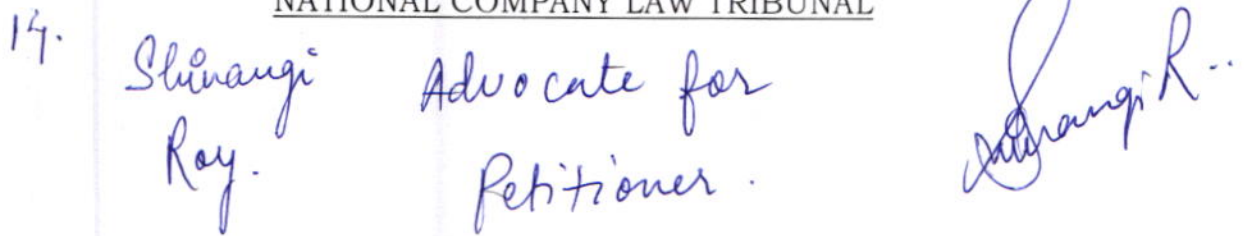 NATIONAL COMPANY LAW TRIBUNAL
14.
Shivangi Advocate for
Roy. Petitioner.
Shivangi R..